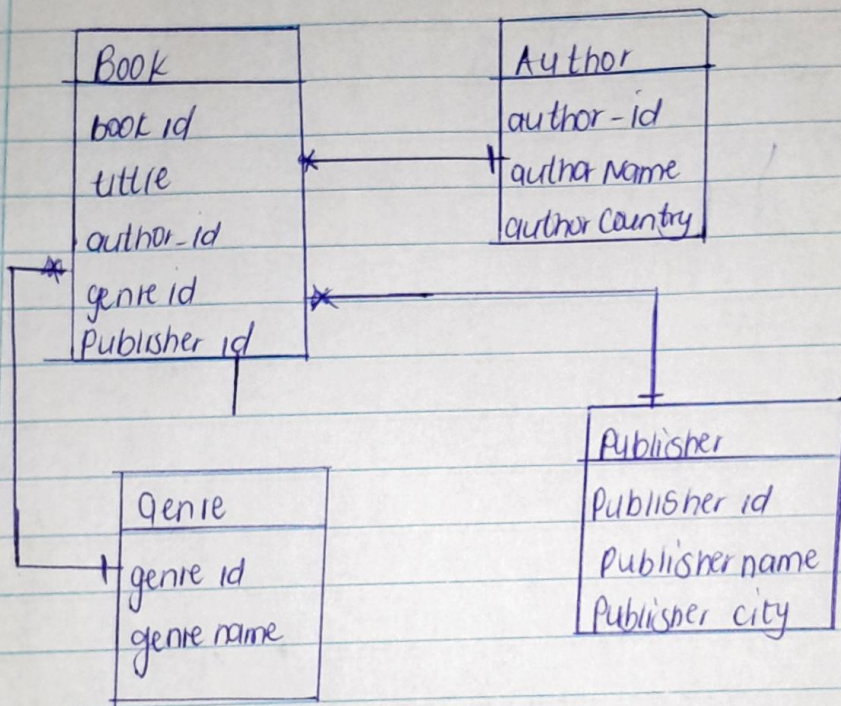 Book
book id
tittle
author_id
genre id
Publisher id
Author
author-id
author Name
author Country
Genre
genre id
genre name
Publisher
Publisher id
Publisher name
Publisher city